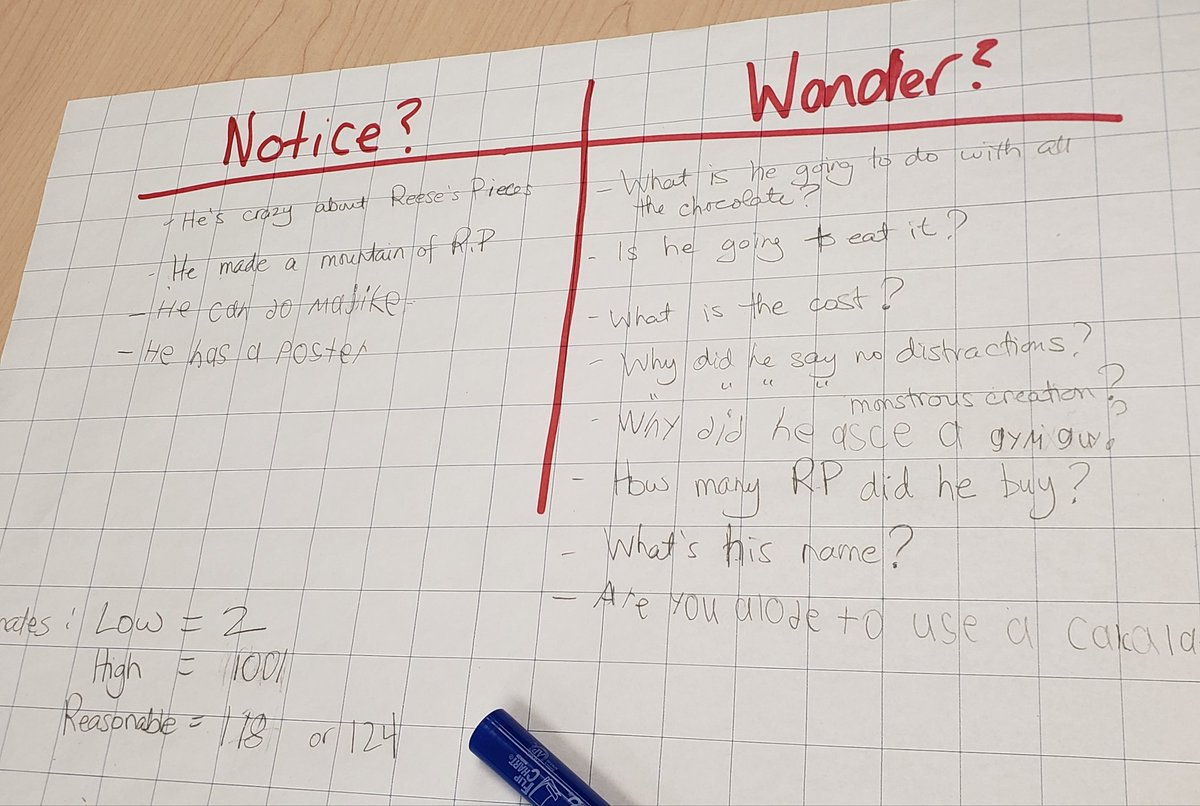 Notice?
- He's crazy about Reese's Pieces
- He made a mountain of R.P
- He can do majike
- He has a Poster
Wonder?
- What is he going to do with all
the chocolate?
- Is he going to eat it?
- What is the cost?
- Why did he say no distractions?
" " " " monstrous creation?
- Why did he a gymguy?
- How many RP did he buy?
- What's his name?
- Are you to use a cakala
nates: Low = 2
High = 1001
Reasonable = 118 or 124
FLIP
CHART